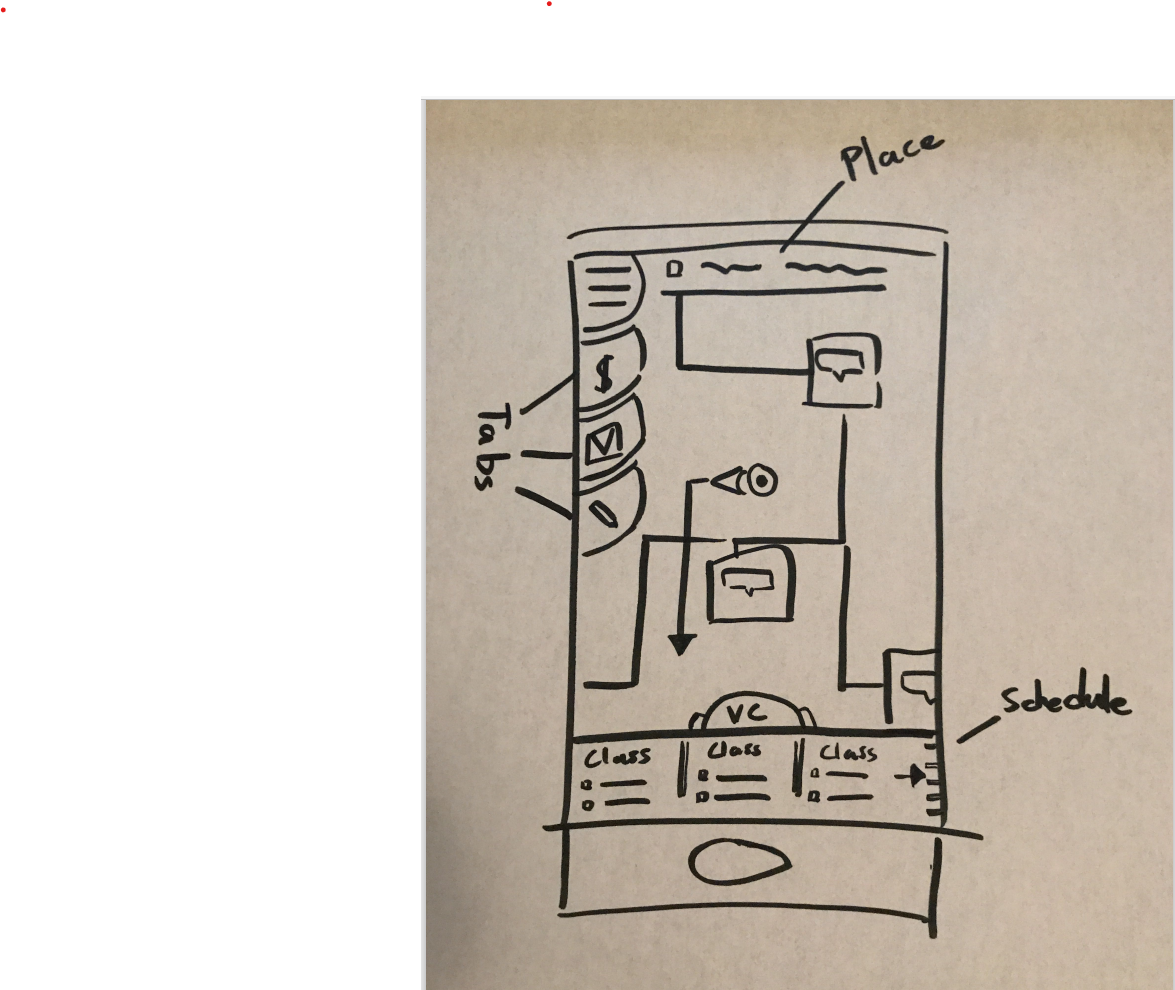 Place
$
Tabs
VC
Schedule
Class Class Class